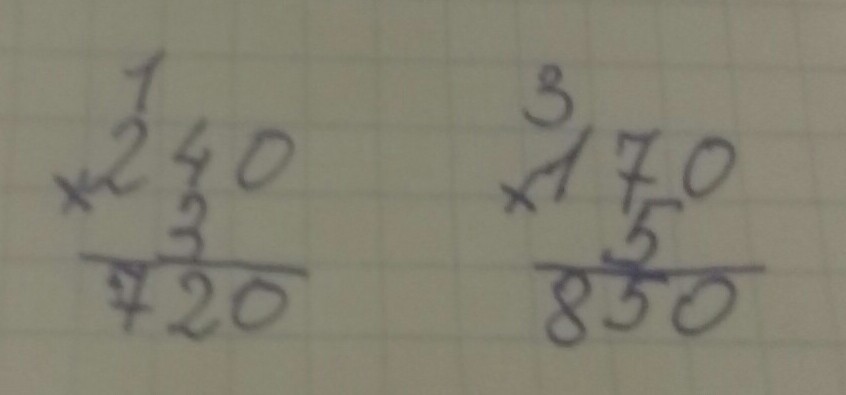 1 3
240 170
×3 ×5
720 850